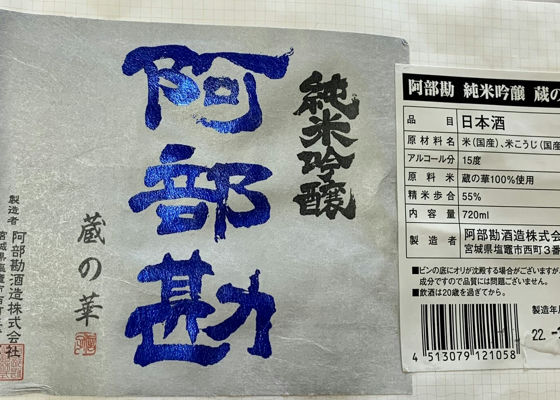 阿部勘
純米吟醸
蔵の華
製造者 阿部勘酒造株式会社
宮城県塩竈市西町
阿部勘 純米吟醸 蔵の
品目 日本酒
原材料名 米(国産)、米こうじ(国産
アルコール分 15度
原料米 蔵の華100%使用
精米歩合 55%
内容量 720ml
製造者 阿部勘酒造株式会
宮城県塩竈市西町3番
■ビンの底にオリが沈殿する場合がございますが
成分ですので品質には問題ございません。
■飲酒は20歳を過ぎてから。
製造年月
22.
4 513079 121058